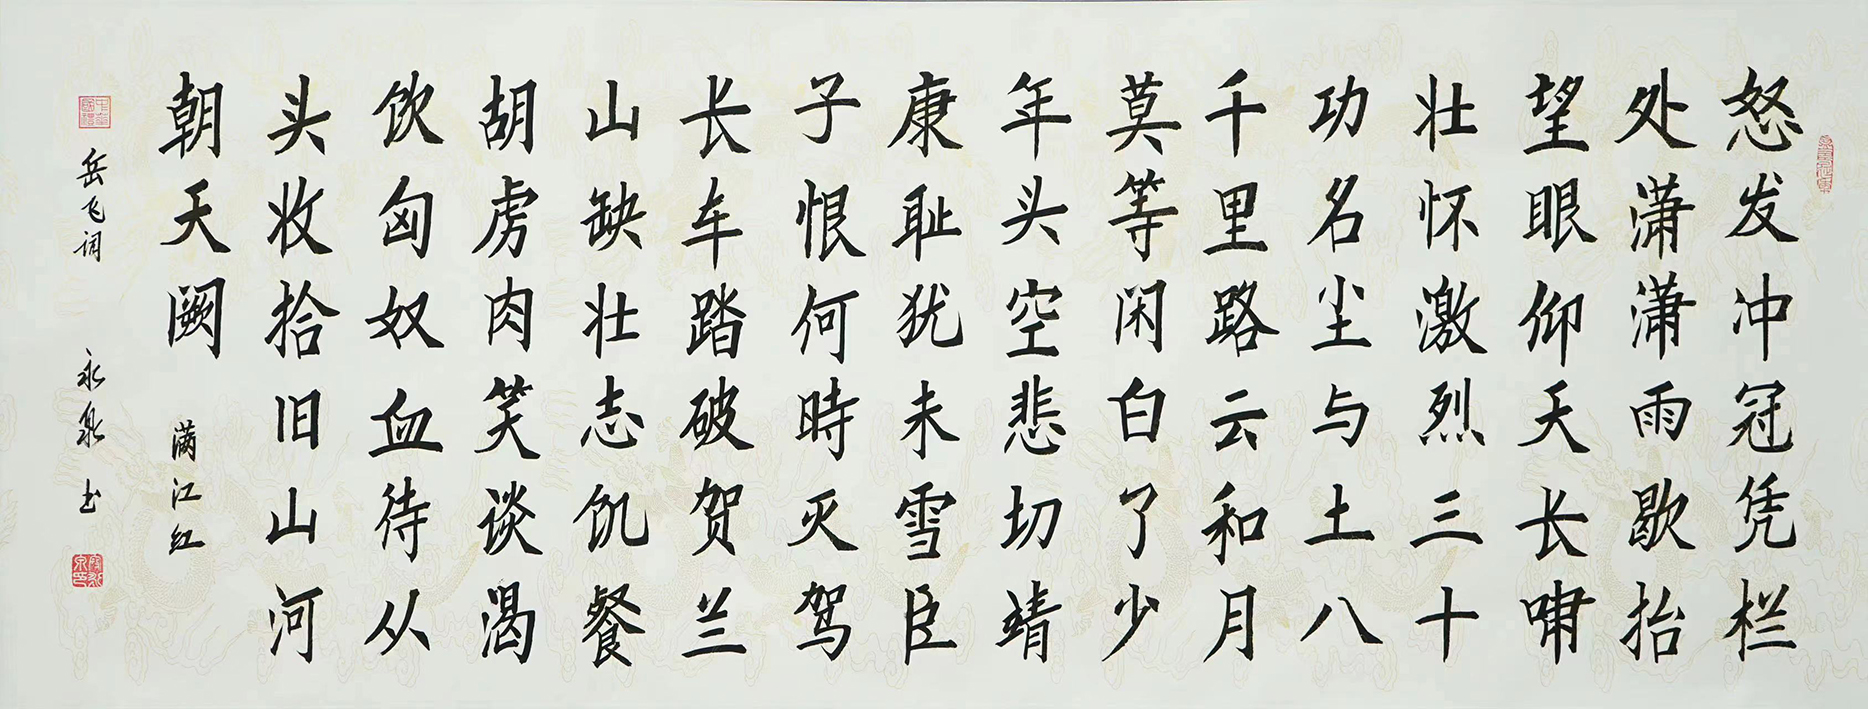 怒发冲冠凭栏
处潇潇雨歇抬
望眼仰天长啸
壮怀激烈三十
功名尘与土八
千里路云和月
莫等闲白了少
年头空悲切靖
康耻犹未雪臣
子恨何時灭驾
长车踏破贺兰
山缺壮志饥餐
胡虏肉笑谈渴
饮匈奴血待从
头收拾旧山河
朝天阙
满江红
岳飞词
永泉书